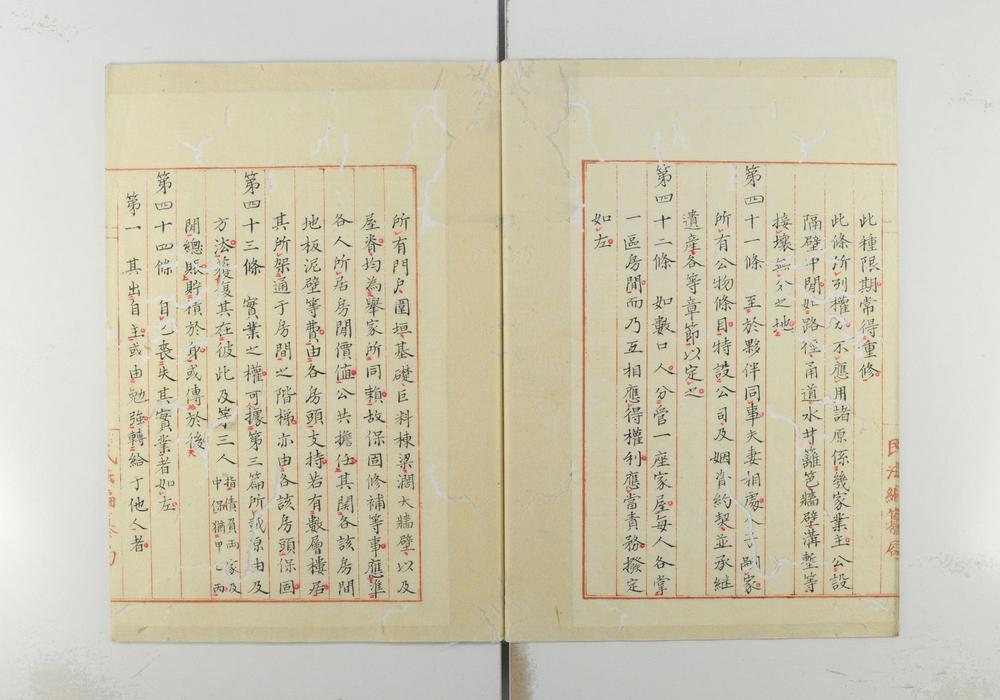 此種限期常得重修
此條所列權不應用諸原係幾家業主公設
隔壁中間如路徑甬道水井籬笆牆壁溝塹等
接壤無分之地
第四十一條 至於夥伴同事夫妻相處人子嗣家
所有公物條目特設公司及姻眷約契並承繼
遺產各等章節以定之
第四十二條 如數口人分管一座家屋每人各掌
一區房間而乃互相應得權利應當責務撥定
如左
所有門戶圍垣基礎巨料棟梁濶大牆壁以及
屋脊均為舉家所同賴故保固修補等事應準
各人所居房間價值公共擔任其關各該房間
地板泥壁等費由各房頭支持若有數層樓居
其所架通于房間之階梯亦由各該房頭保固
第四十三條 實業之權可據第三篇所載原由及
方法獲復其在彼此及等三人 指債負兩家及
中保猶甲乙丙
間總賬貯積於身或傳於後
第四十四條 自己喪失其實業者如左
第一 其出自主或由勉強轉給于他人者
民法編纂局